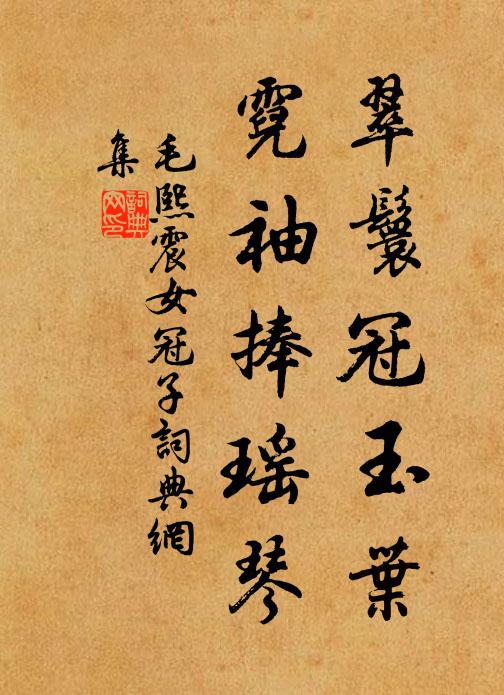 翠鬟冠玉葉
霓袖捧瑤琴
毛熙震女冠子詞典網
集
詞典
网印